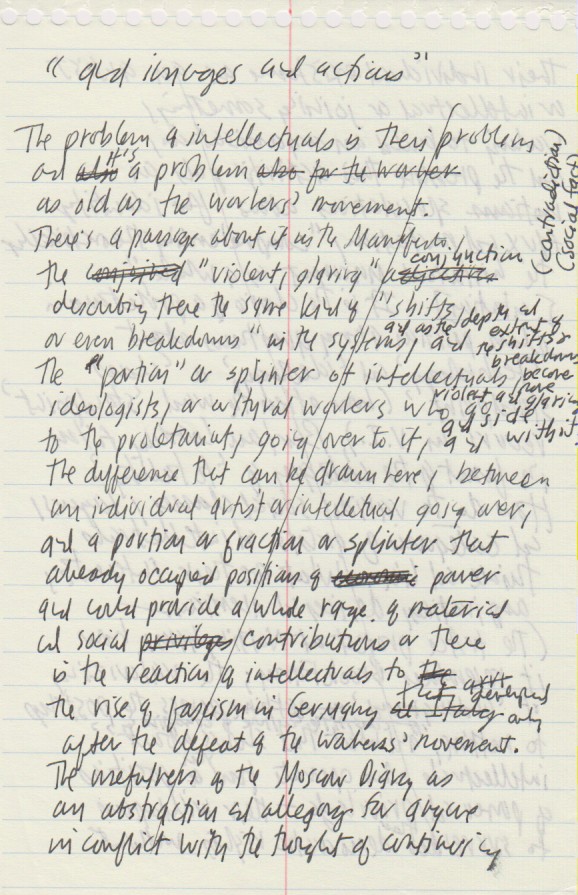 " and images and actions "
The problem of intellectuals is their problem
and also it's a problem also for the worker
as old as the workers' movement.
There's a passage about it in the Manifesto.
the "violent, glaring" adjectives conjunction
(contradiction)
(social fact)
describing there the same kind of "shifts
or even breakdowns" in the systems, and
and as the depth and extent of the shifts & breakdowns become more violent and glaring
The "portion" or splinter of intellectuals
ideologists, or cultural workers who go and side
to the proletariat, going over to it, and within it.
the difference that can be drawn here, between
an individual artist or intellectual going over,
and a portion or fraction or splinter that
already occupied positions of economic power
and could provide a whole range of material
and social privileges contributions or there
is the reaction of intellectuals to the
the rise of fascism in Germany and Italy only
after the defeat of the workers' movement.
The usefulness of the Moscow Diary as
an abstraction and allegory for anyone
in conflict with the thought of continuing